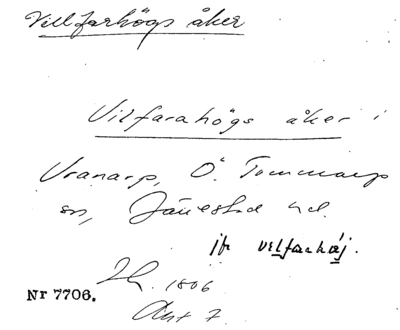 Villfarhögs åker
Vilfarahögs åker i
Vranarp, Ö. Tommarp
sn, Järrestad hd.
jfr vilfarhøj.
1806
Nr 7706.
Akt 7